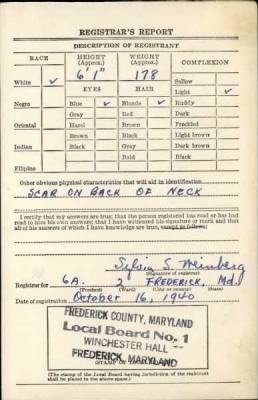 REGISTRAR'S REPORT
DESCRIPTION OF REGISTRANT
RACE HEIGHT (Approx.) WEIGHT (Approx.) COMPLEXION
6'1" 178 Sallow
White ✓ EYES HAIR Light ✓
Negro Blue ✓ Blonde ✓ Ruddy
Gray Red Dark
Oriental Hazel Brown Freckled
Brown Black Light brown
Indian Black Gray Dark brown
Bald Black
Filipino
Other obvious physical characteristics that will aid in identification
SCAR ON BACK OF NECK
I certify that my answers are true; that the person registered has read or has had
read to him his own answers; that I have witnessed his signature or mark and that
all of his answers of which I have knowledge are true, except as follows:
Sylvia S. Weinberg
(Signature of registrar)
Registrar for 6A. 2 FREDERICK, Md.
(Precinct) (Ward) (City or county) (State)
Date of registration October 16, 1940
FREDERICK COUNTY, MARYLAND
Local Board No. 1
WINCHESTER HALL
FREDERICK, MARYLAND
(The stamp of the Local Board having jurisdiction of the registrant
shall be placed in the above space.)